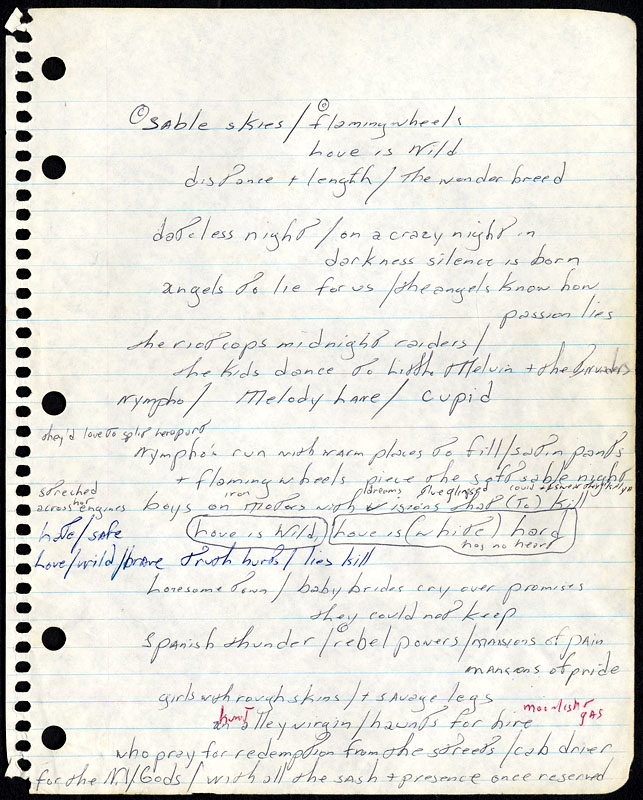 © sable skies / © flaming wheels
Love is Wild
distance + length / the wonder breed
dateless night / on a crazy night in
darkness silence is born
angels to lie for us / the angels know how
passion lies
the riot cops midnight raiders /
the kids dance to Little Melvin + the Invaders
Nympho / Melody Lane / Cupid
they'd love to split
Nympho's run with warm places to fill / satin pants
+ flaming wheels pierce the soft sable night
streched iron dreams blue
across her engines boys on Motors with visions that (To) kill
hate / safe (Love is Wild) (Love is (white) hard
has no heart
Love / wild / brave truth hurts / lies kill
Lonesome town / baby brides cry over promises
they could not keep
Spanish thunder / © rebel powers / mansions of pain
mansions of pride
girls with rough skins / + savage legs
hunt moonlight
gas
alley virgin / haunts for hire
who pray for redemption from the streets / cab driver
for the N.Y. Gods / with all the sash + presence once reserved